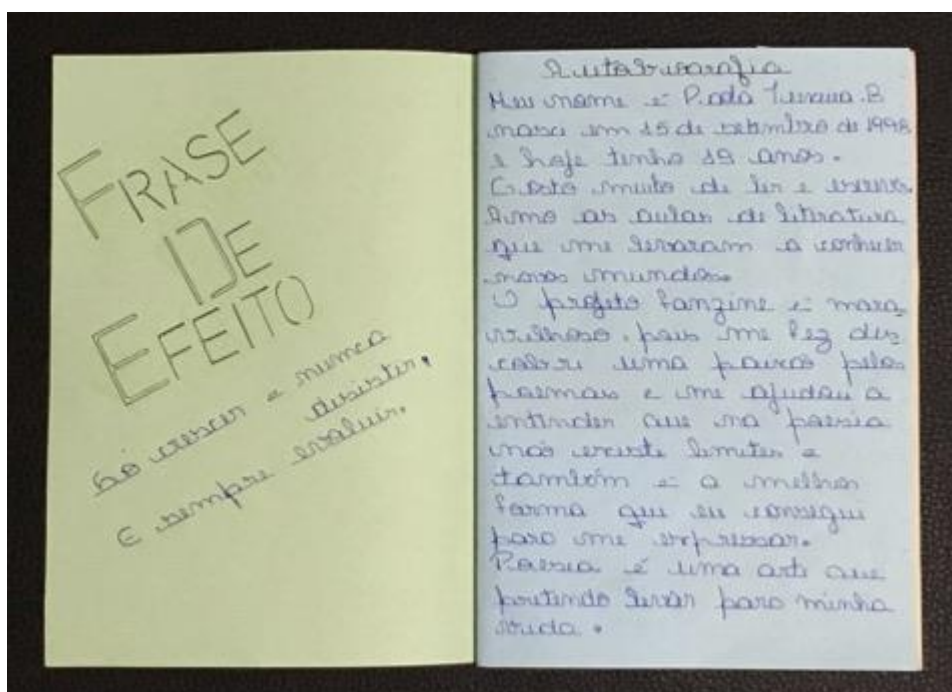 FRASE
DE
EFEITO
Só crescer e nunca
desistir.
E sempre evoluir.
Autobiografia
Meu nome é B
nasci em 15 de setembro de 1998
e hoje tenho 19 anos.
Gosto muito de ler e escrever.
Amo as aulas de literatura
que me levaram a conhecer
novos mundos.
O projeto fanzine é mara
vilhoso, pois me fez des
cobri uma paixão pelos
poemas e me ajudou a
entender que na poesia
não existe limites e
também é a melhor
forma que eu consegui
para me expressar.
Poesia é uma arte que
pretendo levar para minha
vida.